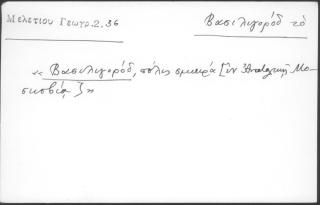 Μελετίου Γεωγρ.2.36
Βασιλιγορόδ τὸ
« Βασιλιγορόδ, πόλις σμικρά [ἐν Ἀνατολικῇ Μο-
σκοβίᾳ] »